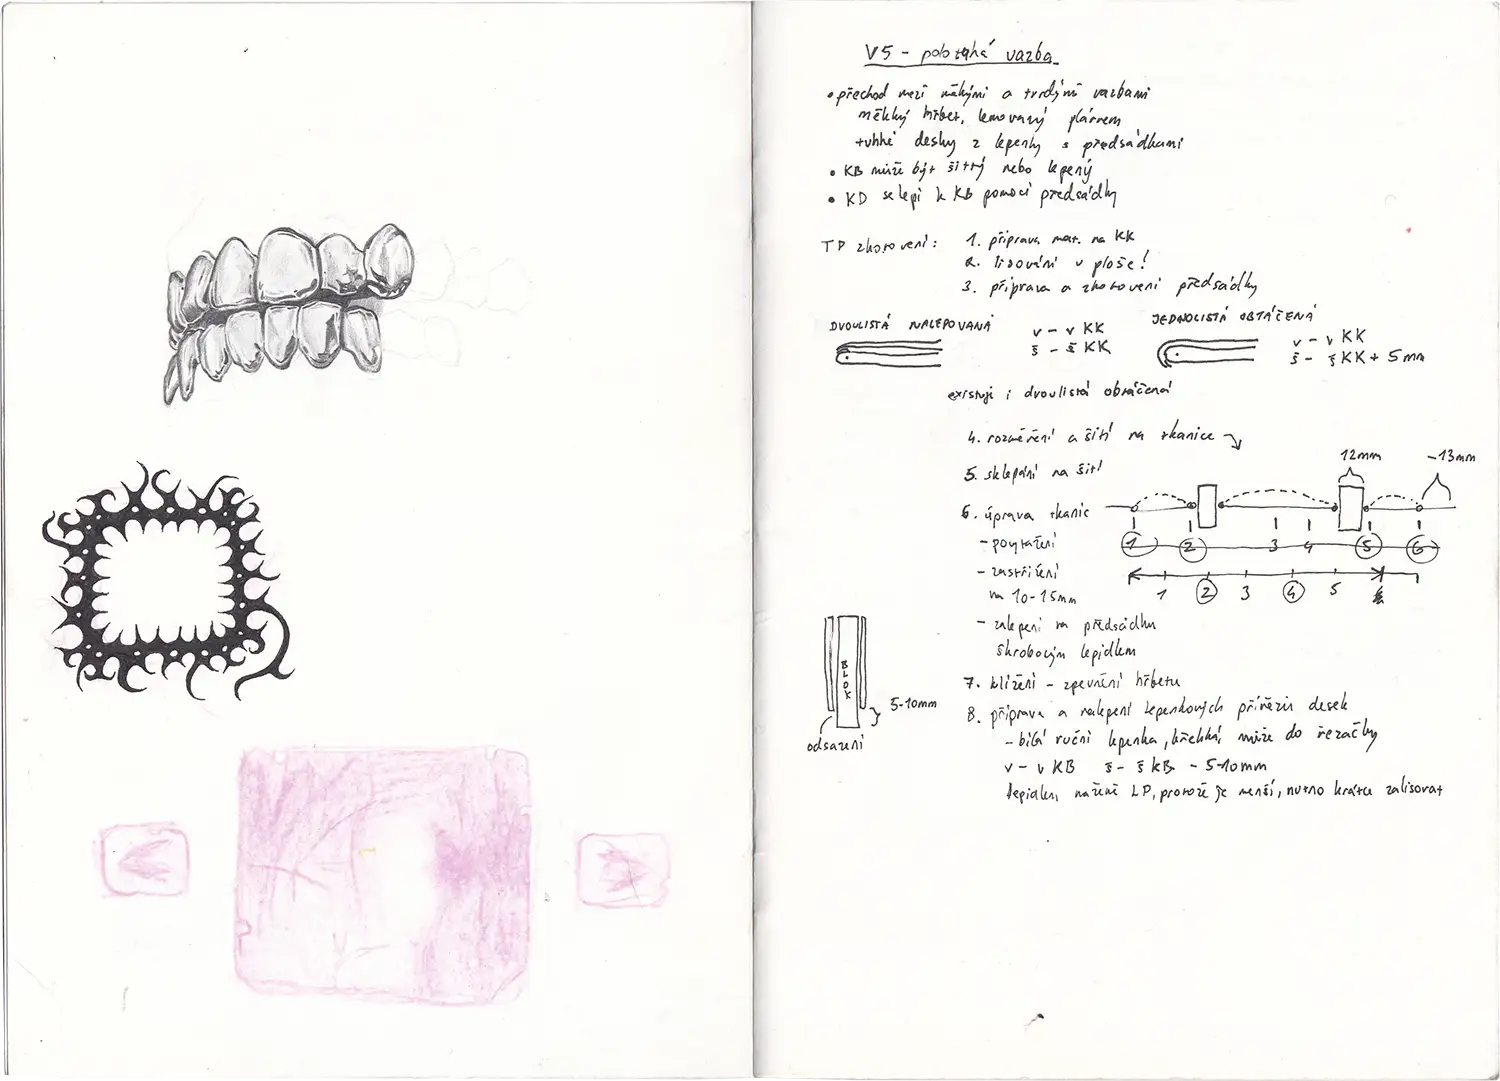 V5 - polotuhá vazba
• přechod mezi měkými a tvrdými vazbami
měkký hřbet, lemovaný plátnem
tuhhé desky z lepenky s předsádkami
• KB může být šitý nebo lepený
• KD se lepí k KB pomocí předsádky
TP zhotovení: 1. příprava mat. na KK
2. lisování v ploše!
3. příprava a zhotovení předsádky
DVOULISTÁ NALEPOVANÁ
v - v KK
š - š KK
JEDNOLISTÁ OBTÁČENÁ
v - v KK
š - š KK + 5 mm
existují i dvoulistá obtáčená
4. rozměření a šití na tkanice
5. sklepání na šití
6. úprava tkanic
- povytažení
- zastřižení
na 10-15mm
- zalepení na předsádku
škrobovým lepidlem
12mm
~13mm
1 2 3 4 5 6
1 2 3 4 5
BLOK
5-10mm
odsazení
7. klížení - zpevnění hřbetu
8. příprava a nalepení lepenkových přířezů desek
- bílá ruční lepenka, křehká, může do řezačky
v - v KB š - š KB - 5-10mm
lepidlem nažene LP, protože je menší, nutno krátce zalisovat